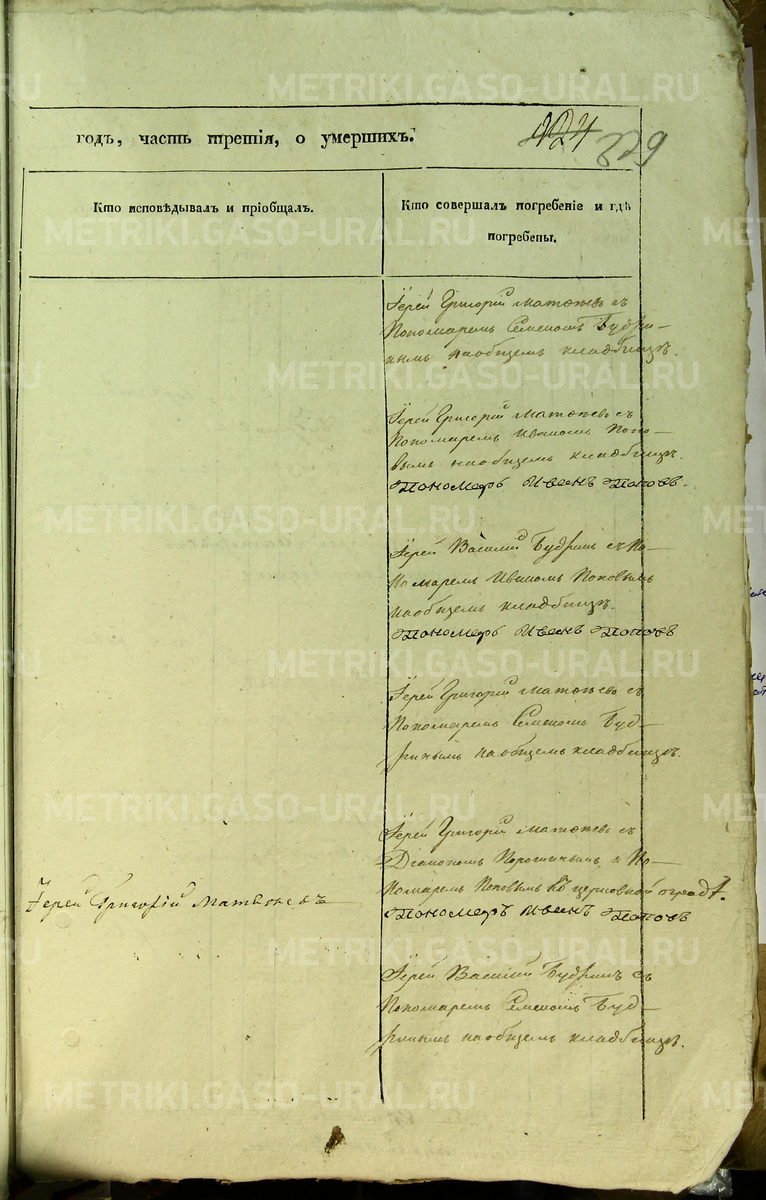 METRIKI.GASO-URAL.RU
годъ, часть третія, о умершихъ.
424
229
Кто исповѣдывалъ и пріобщалъ.
Кто совершалъ погребеніе и гдѣ
погребены.
Іерей Григорій Матвѣевъ съ
Пономаремъ Семеномъ Будри-
нымъ наобщемъ кладбищѣ.
Іерей Григорій Матвѣевъ съ
Пономаремъ Иваномъ Попо-
вымъ наобщемъ кладбищѣ.
Пономаръ Иванъ Поповъ.
Іерей Василій Будринъ съ По-
номаремъ Иваномъ Поповымъ
наобщемъ кладбищѣ.
Пономаръ Иванъ Поповъ
Іерей Григорій Матвѣевъ съ
Пономаремъ Семеномъ Буд-
ринымъ наобщемъ кладбищѣ.
Іерей Григорій Матвѣевъ съ
Діакономъ Порошинымъ и По-
номаремъ Поповымъ въ церковной оградѣ.
Іерей Григорій Матвѣевъ
Пономаръ Иванъ Поповъ
Іерей Василій Будринъ съ
Пономаремъ Семеномъ Буд-
ринымъ наобщемъ кладбищѣ.